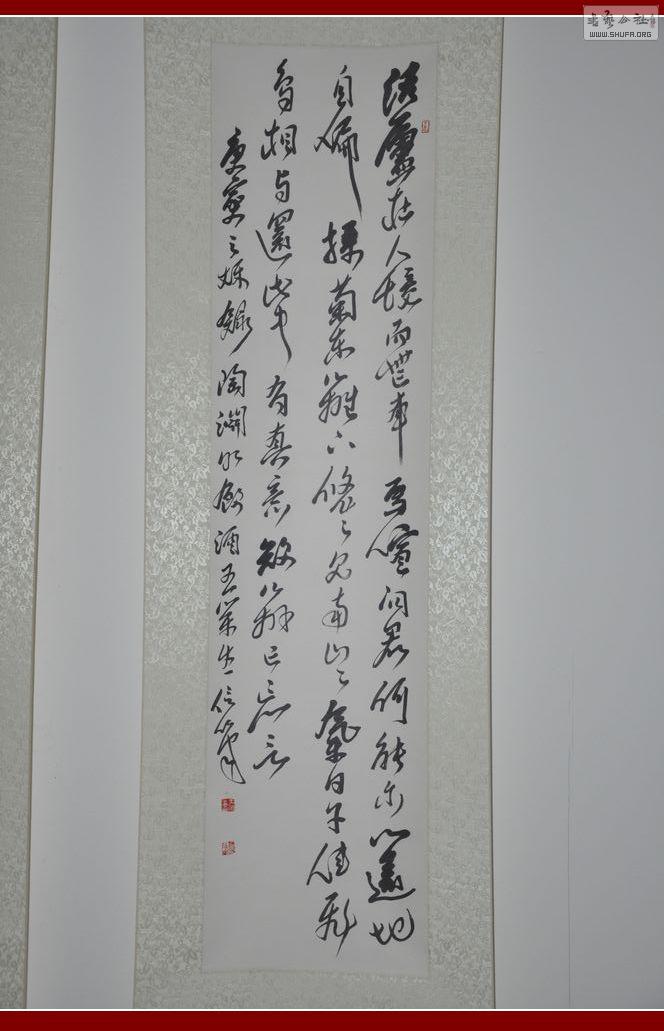 書藝公社
WWW.SHUFA.ORG
結廬在人境而無車馬喧問君何能尔心遠地
自偏採菊東籬下悠〻見南山〻氣日夕佳飛
鳥相与還此中有真意欲辨已忘言
庚寅之秌録陶淵明飲酒五信筆